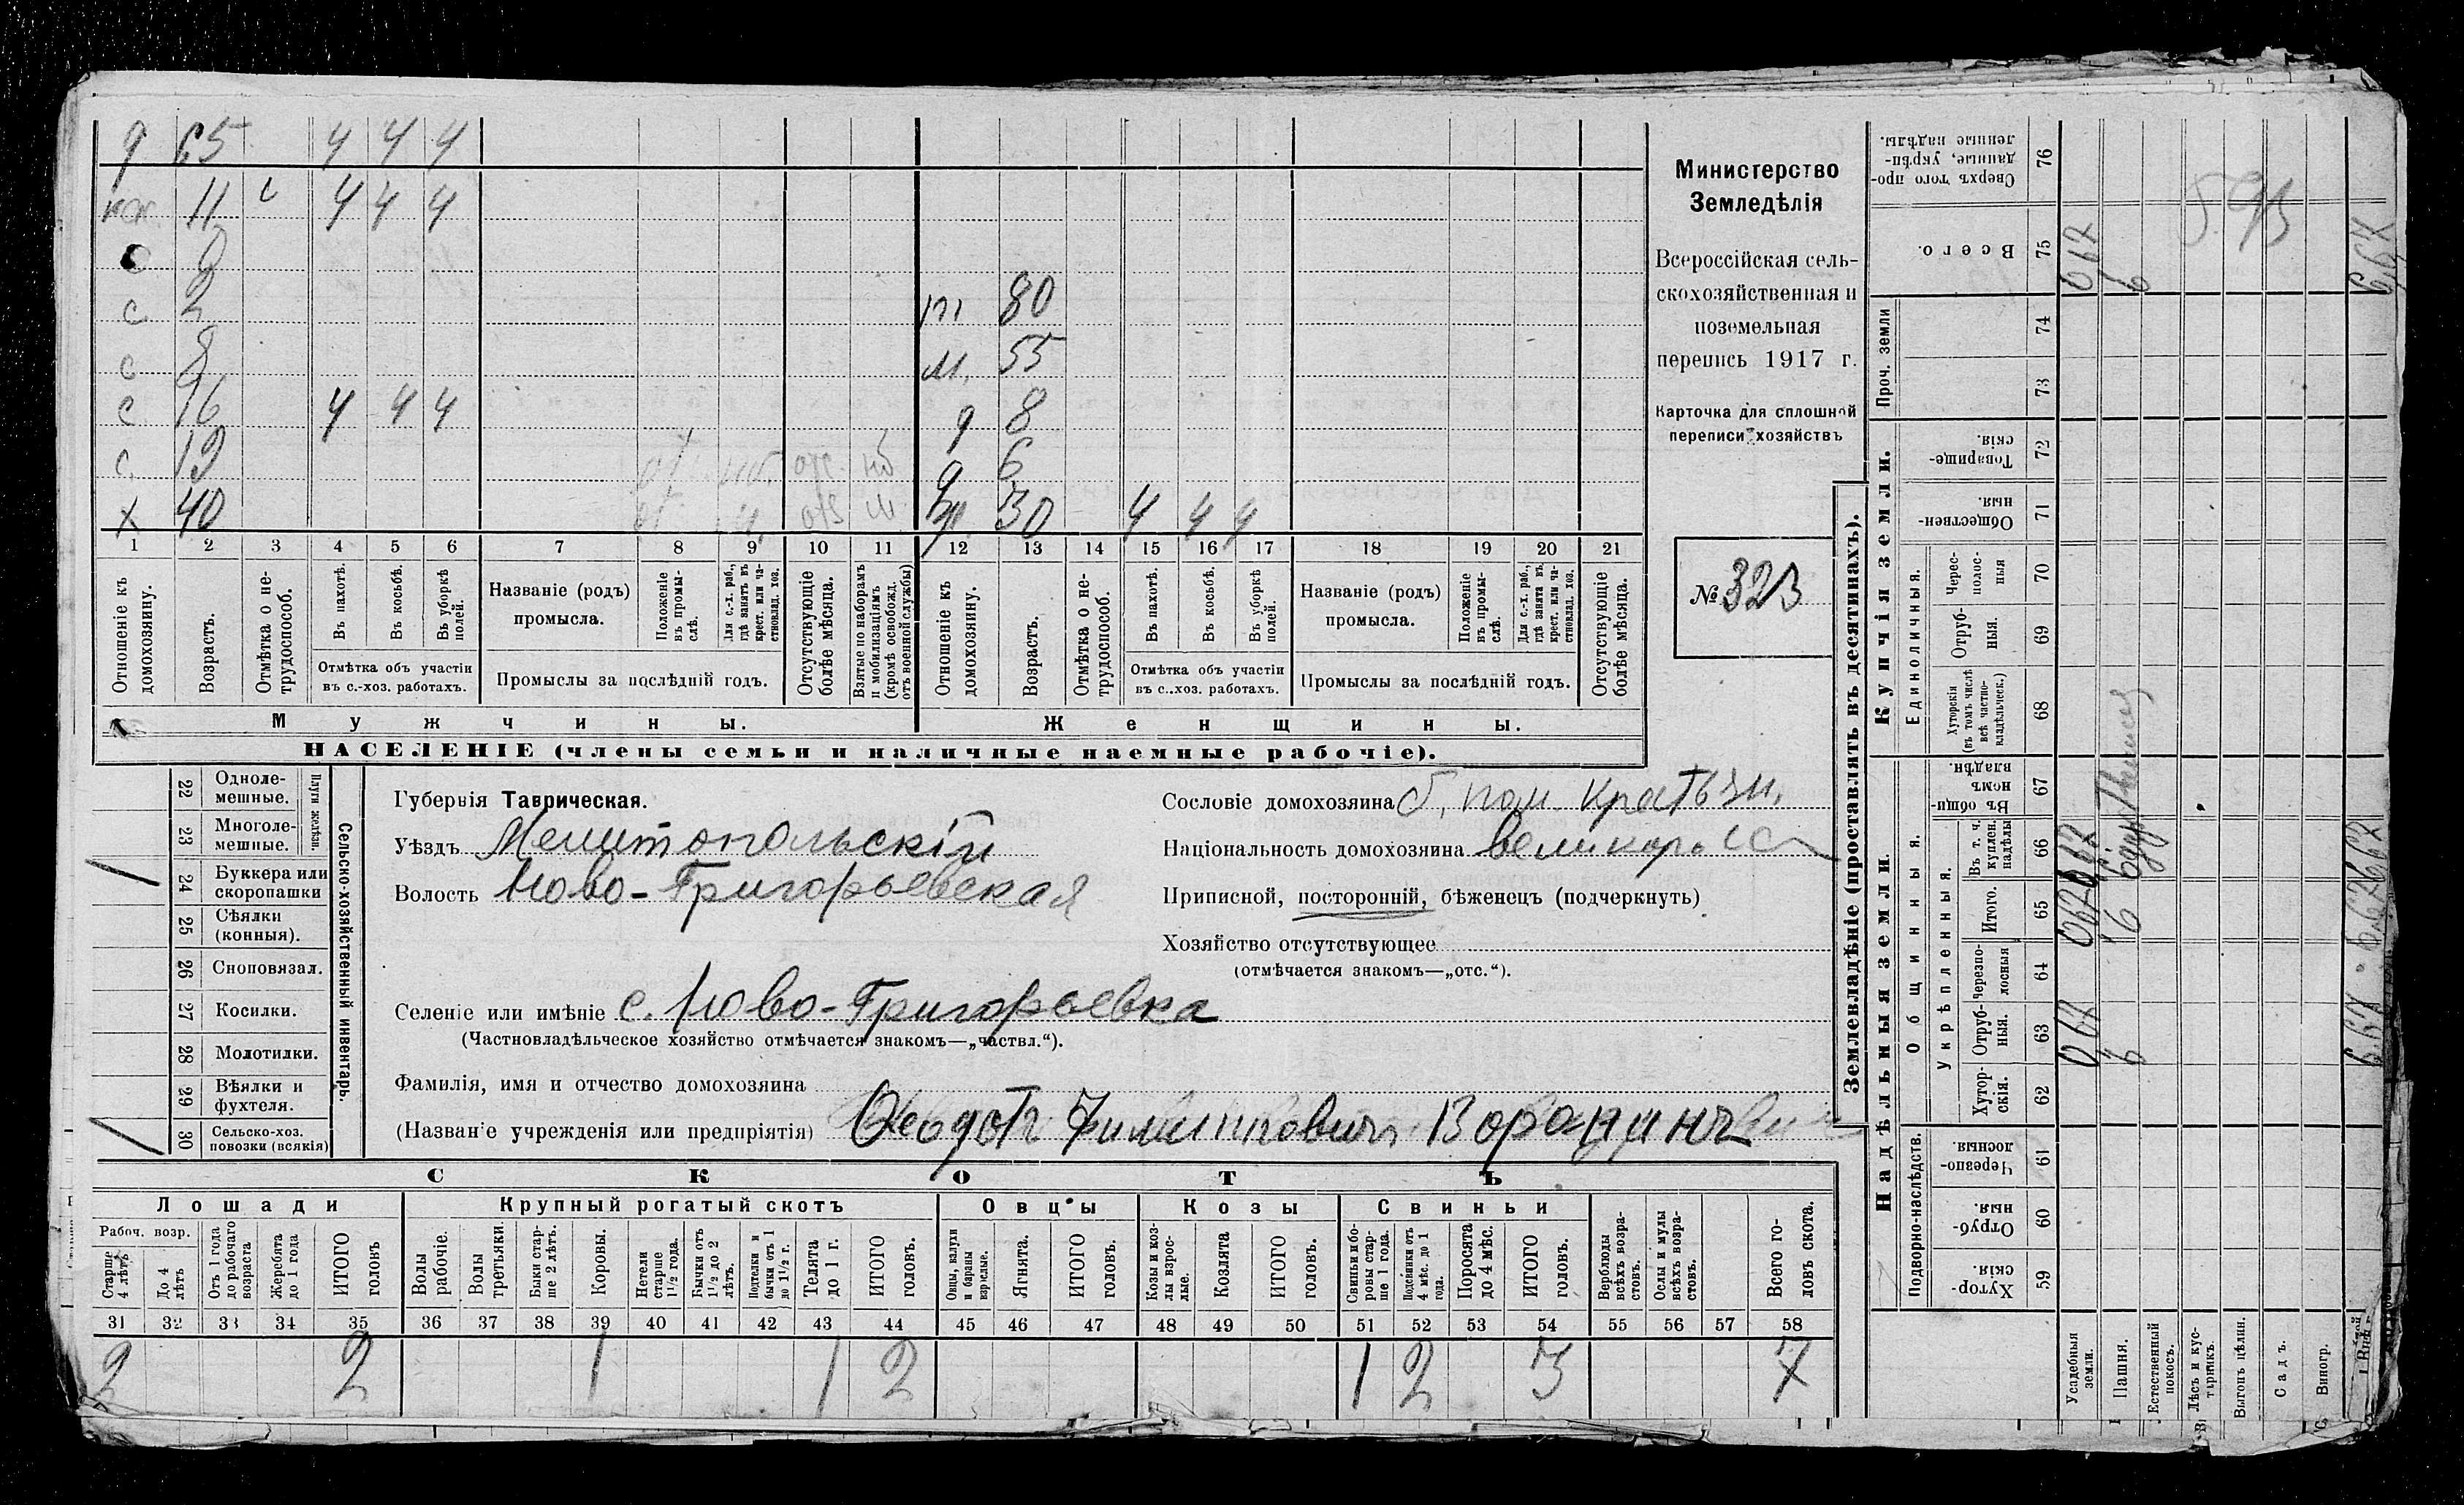 65 ч ч ч
11 ч ч ч
с 2
м 80
с 8
м. 55
с 16 ч ч ч
8
с. 19
6
х 40
30 ч ч ч
1 2 3 4 5 6 7 8 9 10 11 12 13 14 15 16 17 18 19 20 21
Отношеніе къ домохозяину.
Возрастъ.
Отмѣтка о нетрудоспособ.
Въ пахотѣ.
Въ косьбѣ.
Въ уборкѣ полей.
Отмѣтка объ участіи
въ с.-хоз. работахъ.
Названіе (родъ)
промысла.
Положеніе въ промыслѣ.
Для с.-х. раб., гдѣ занятъ въ крест. или частновлад. хоз.
Промыслы за послѣдній годъ.
Отсутствующіе болѣе мѣсяца.
Взятые по наборамъ и мобилизаціямъ (кромѣ освобожд. отъ военной службы)
Отношеніе къ домохозяину.
Возрастъ.
Отмѣтка о нетрудоспособ.
Въ пахотѣ.
Въ косьбѣ.
Въ уборкѣ полей.
Отмѣтка объ участіи
въ с.-хоз. работахъ.
Названіе (родъ)
промысла.
Положеніе въ промыслѣ.
Для с.-х. раб., гдѣ занята въ крест. или частновлад. хоз.
Промыслы за послѣдній годъ.
Отсутствующіе болѣе мѣсяца.
Мужчины.
Женщины.
НАСЕЛЕНІЕ (члены семьи и наличные наемные рабочіе).
Министерство
Земледѣлія
Всероссійская сель-
скохозяйственная и
поземельная
перепись 1917 г.
Карточка для сплошной
переписи хозяйствъ
№ 323
22 Одноле-
мешные.
23 Многоле-
мешные.
Плуги желѣзн.
24 Буккера или
скоропашки
25 Сѣялки
(конныя).
26 Сноповязал.
27 Косилки.
28 Молотилки.
29 Вѣялки и
фухтеля.
30 Сельско-хоз.
повозки (всякія)
Сельско-хозяйственный инвентарь.
Губернія Таврическая.
Уѣздъ Мелитопольскій
Волость Ново-Григорьевская
Селеніе или имѣніе с. Ново-Григорьевка
(Частновладѣльческое хозяйство отмѣчается знакомъ—„частвл.“).
Фамилія, имя и отчество домохозяина
(Названіе учрежденія или предпріятія) Ѳеодотъ Филипповичъ
Сословіе домохозяина б. пом.
Національность домохозяина великоросс
Приписной, посторонній, бѣженецъ (подчеркнуть)
Хозяйство отсутствующее
(отмѣчается знакомъ—„отс.“).
СКОТЪ
Лошади
Крупный рогатый скотъ
Овцы
Козы
Свиньи
Рабоч. возр.
Старше 4 лѣтъ
До 4 лѣтъ
Отъ 1 года до рабочаго возраста
Жеребята до 1 года
ИТОГО головъ
Волы рабочіе.
Волы третьяки.
Быки старше 2 лѣтъ.
Коровы.
Нетели старше 1½ года.
Бычки отъ 1½ до 2 лѣтъ.
Подтелки и бычки отъ 1 до 1½ г.
Телята до 1 г.
ИТОГО головъ.
Овцы, валухи и бараны взрослые.
Ягнята.
ИТОГО головъ.
Козы и козлы взрослые.
Козлята
ИТОГО головъ.
Свиньи и боровы старше 1 года.
Подсвинки отъ 4 мѣс. до 1 года.
Поросята до 4 мѣс.
ИТОГО головъ.
Верблюды всѣхъ возрастовъ.
Ослы и мулы всѣхъ возрастовъ.
Всего головъ скота.
31 32 33 34 35 36 37 38 39 40 41 42 43 44 45 46 47 48 49 50 51 52 53 54 55 56 57 58
2 2 1 1 2 1 2 3 7
Землевладѣніе (проставлять въ десятинахъ).
Надѣльныя земли.
Купчія земли.
Проч. земли
Подворно-наслѣдств.
Общинныя.
Укрѣпленныя.
Единоличныя.
Сверхъ того проданные, укрѣпленные надѣлы. 76
Всего. 75
74
73
Товарищескія. 72
Общественныя. 71
Чересполосныя 70
Отрубныя. 69
Хуторскія (въ томъ числѣ всѣ частновладѣльческ.) 68
Въ общинномъ владѣн. 67
Въ т. ч. куплен. надѣлы 66
Итого. 65
Черезполосныя 64
Отрубныя. 63
Хуторскія. 62
Черезполосныя. 61
Отрубныя. 60
Хуторскія. 59
Усадебныя земли.
Пашня.
Естественный покосъ.
Лѣсъ и кустарникъ.
Выгонъ цѣлин.
Садъ.
Виногр.